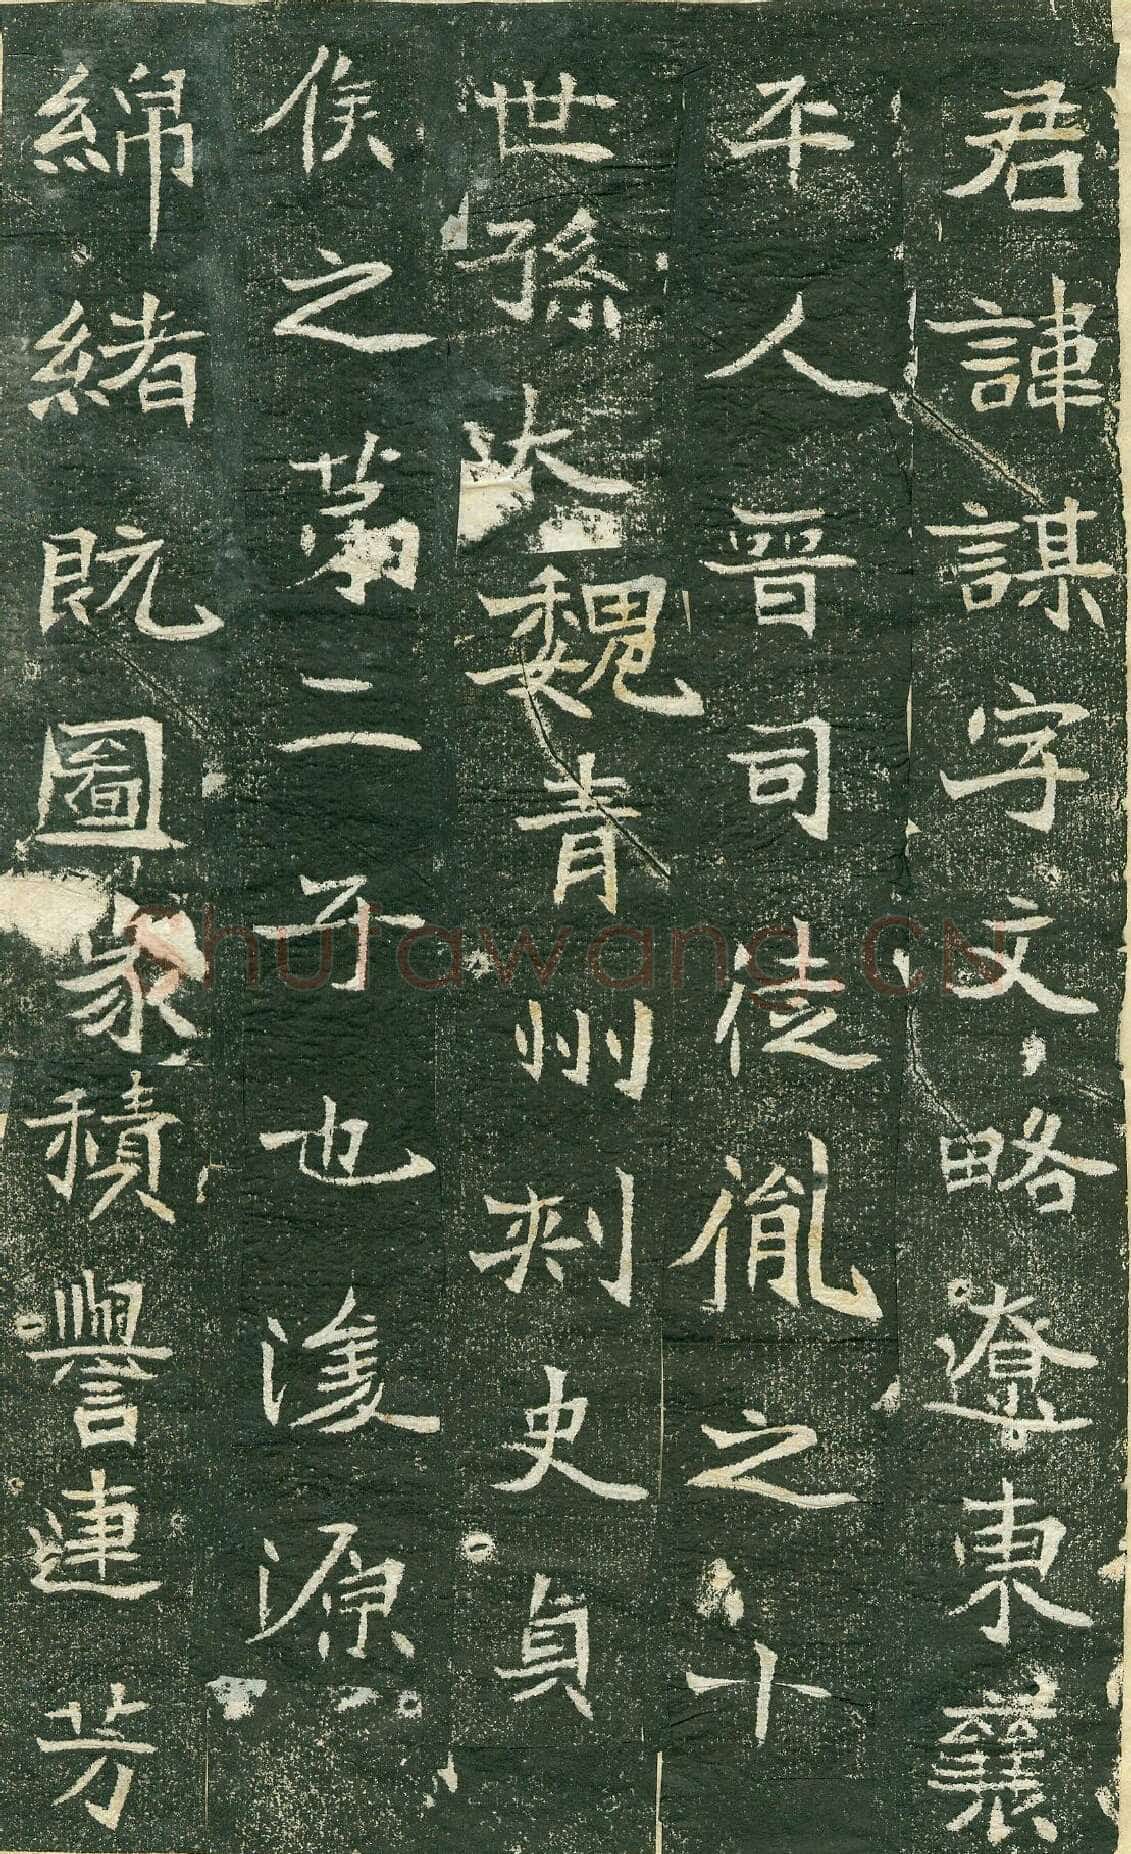 君諱諆字文略遼東襄
平人晉司徒胤之十
世孫大魏青州刺史貞
侯之第二子也濬源
綿緒既圖家積譽連芳
Shufawang.CN